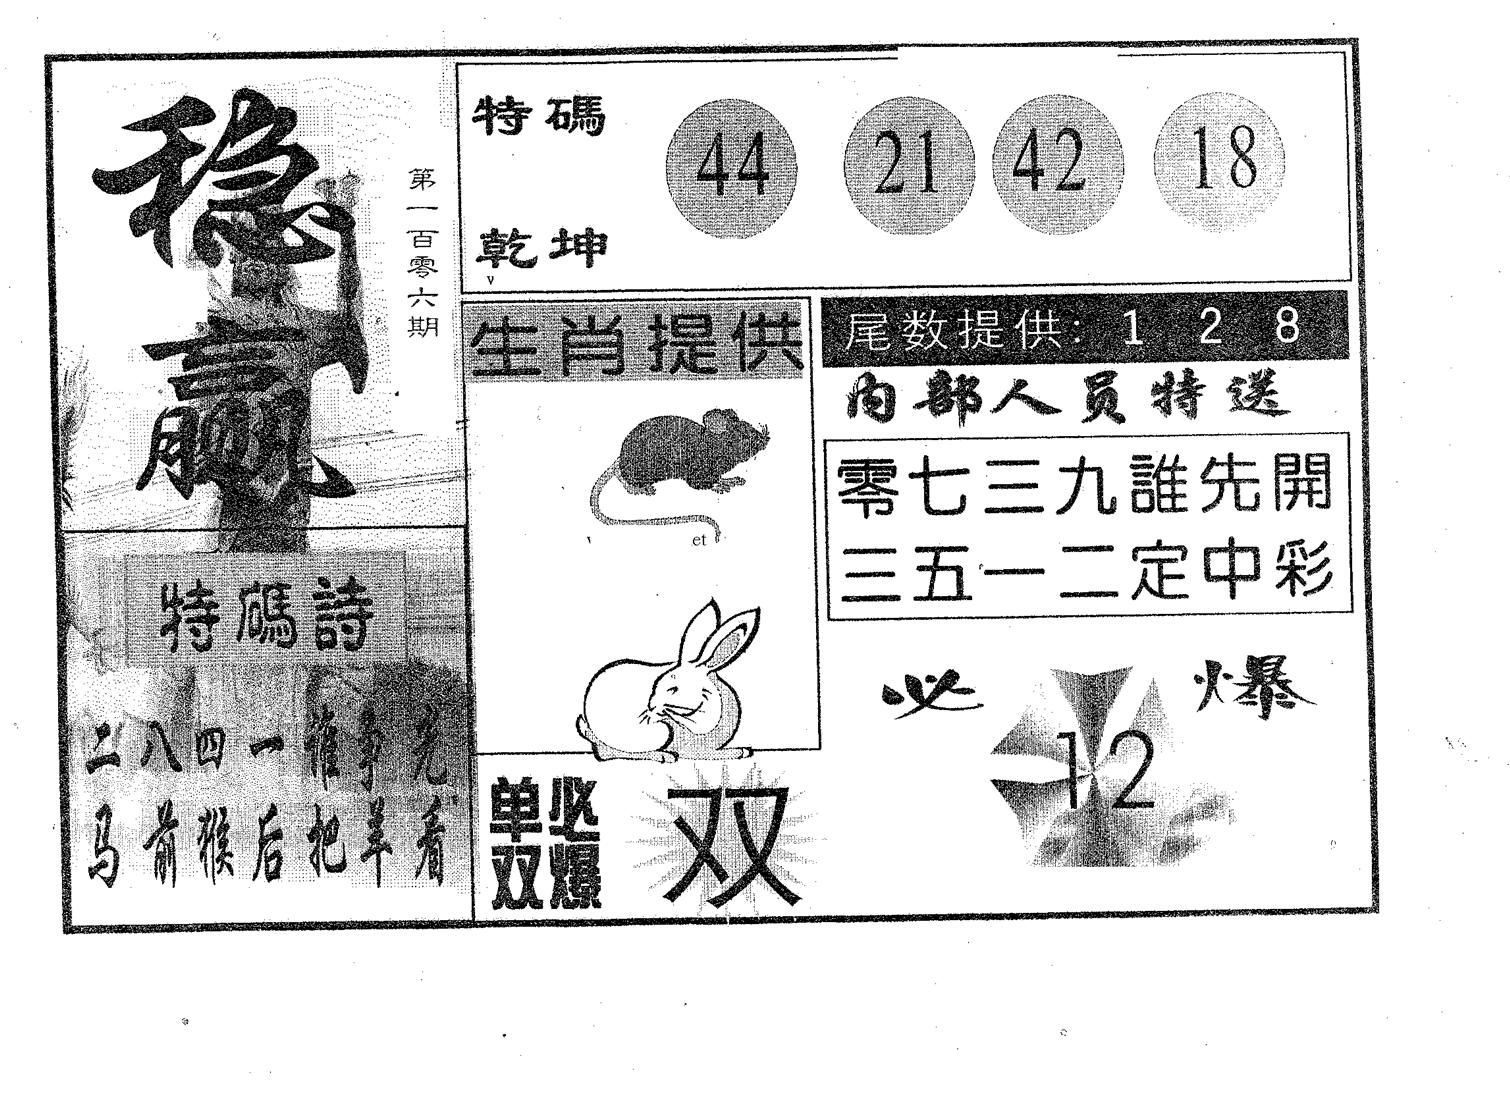 稳赢
第一百零六期
特碼
乾坤
44 21 42 18
v
生肖提供
et
尾数提供: 1 2 8
内部人员特送
零七三九誰先開
三五一二定中彩
特碼詩
二八四一谁争先
马前猴后把羊看
单双必爆
双
必爆
12